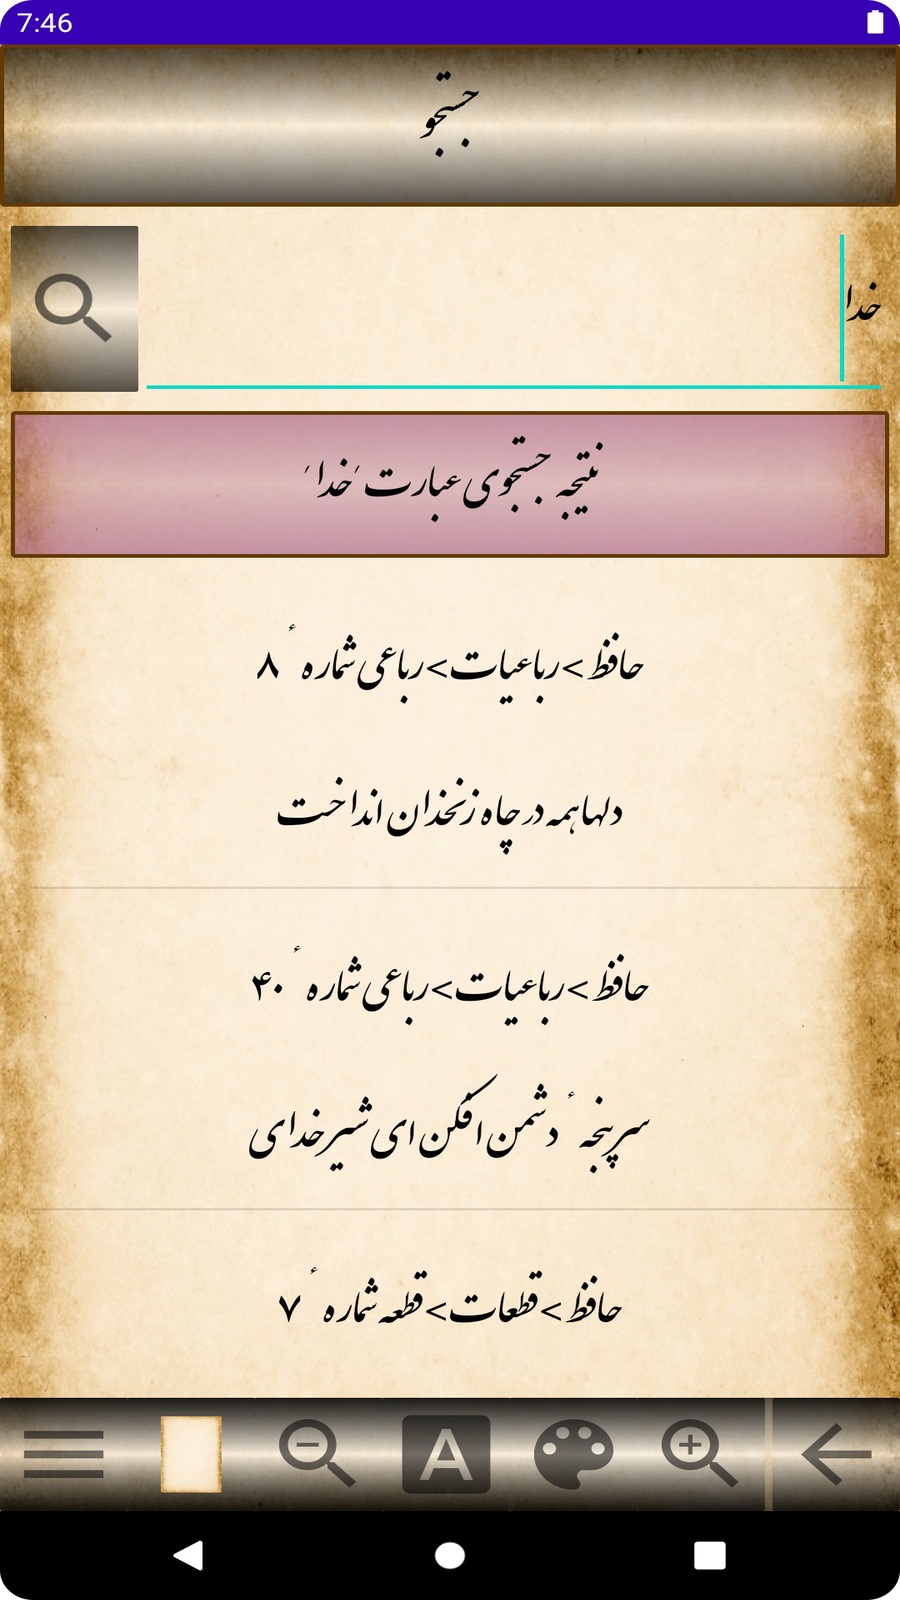 7:46
جستجو
خدا
نتیجه جستجوی عبارت 'خدا'
حافظ > رباعیات > رباعی شمارهٔ ۸
دلها همه در چاه زنخدان انداخت
حافظ > رباعیات > رباعی شمارهٔ ۴۰
سرپنجهٔ دشمن افکن ای شیر خدای
حافظ > قطعات > قطعه شمارهٔ ۷
A